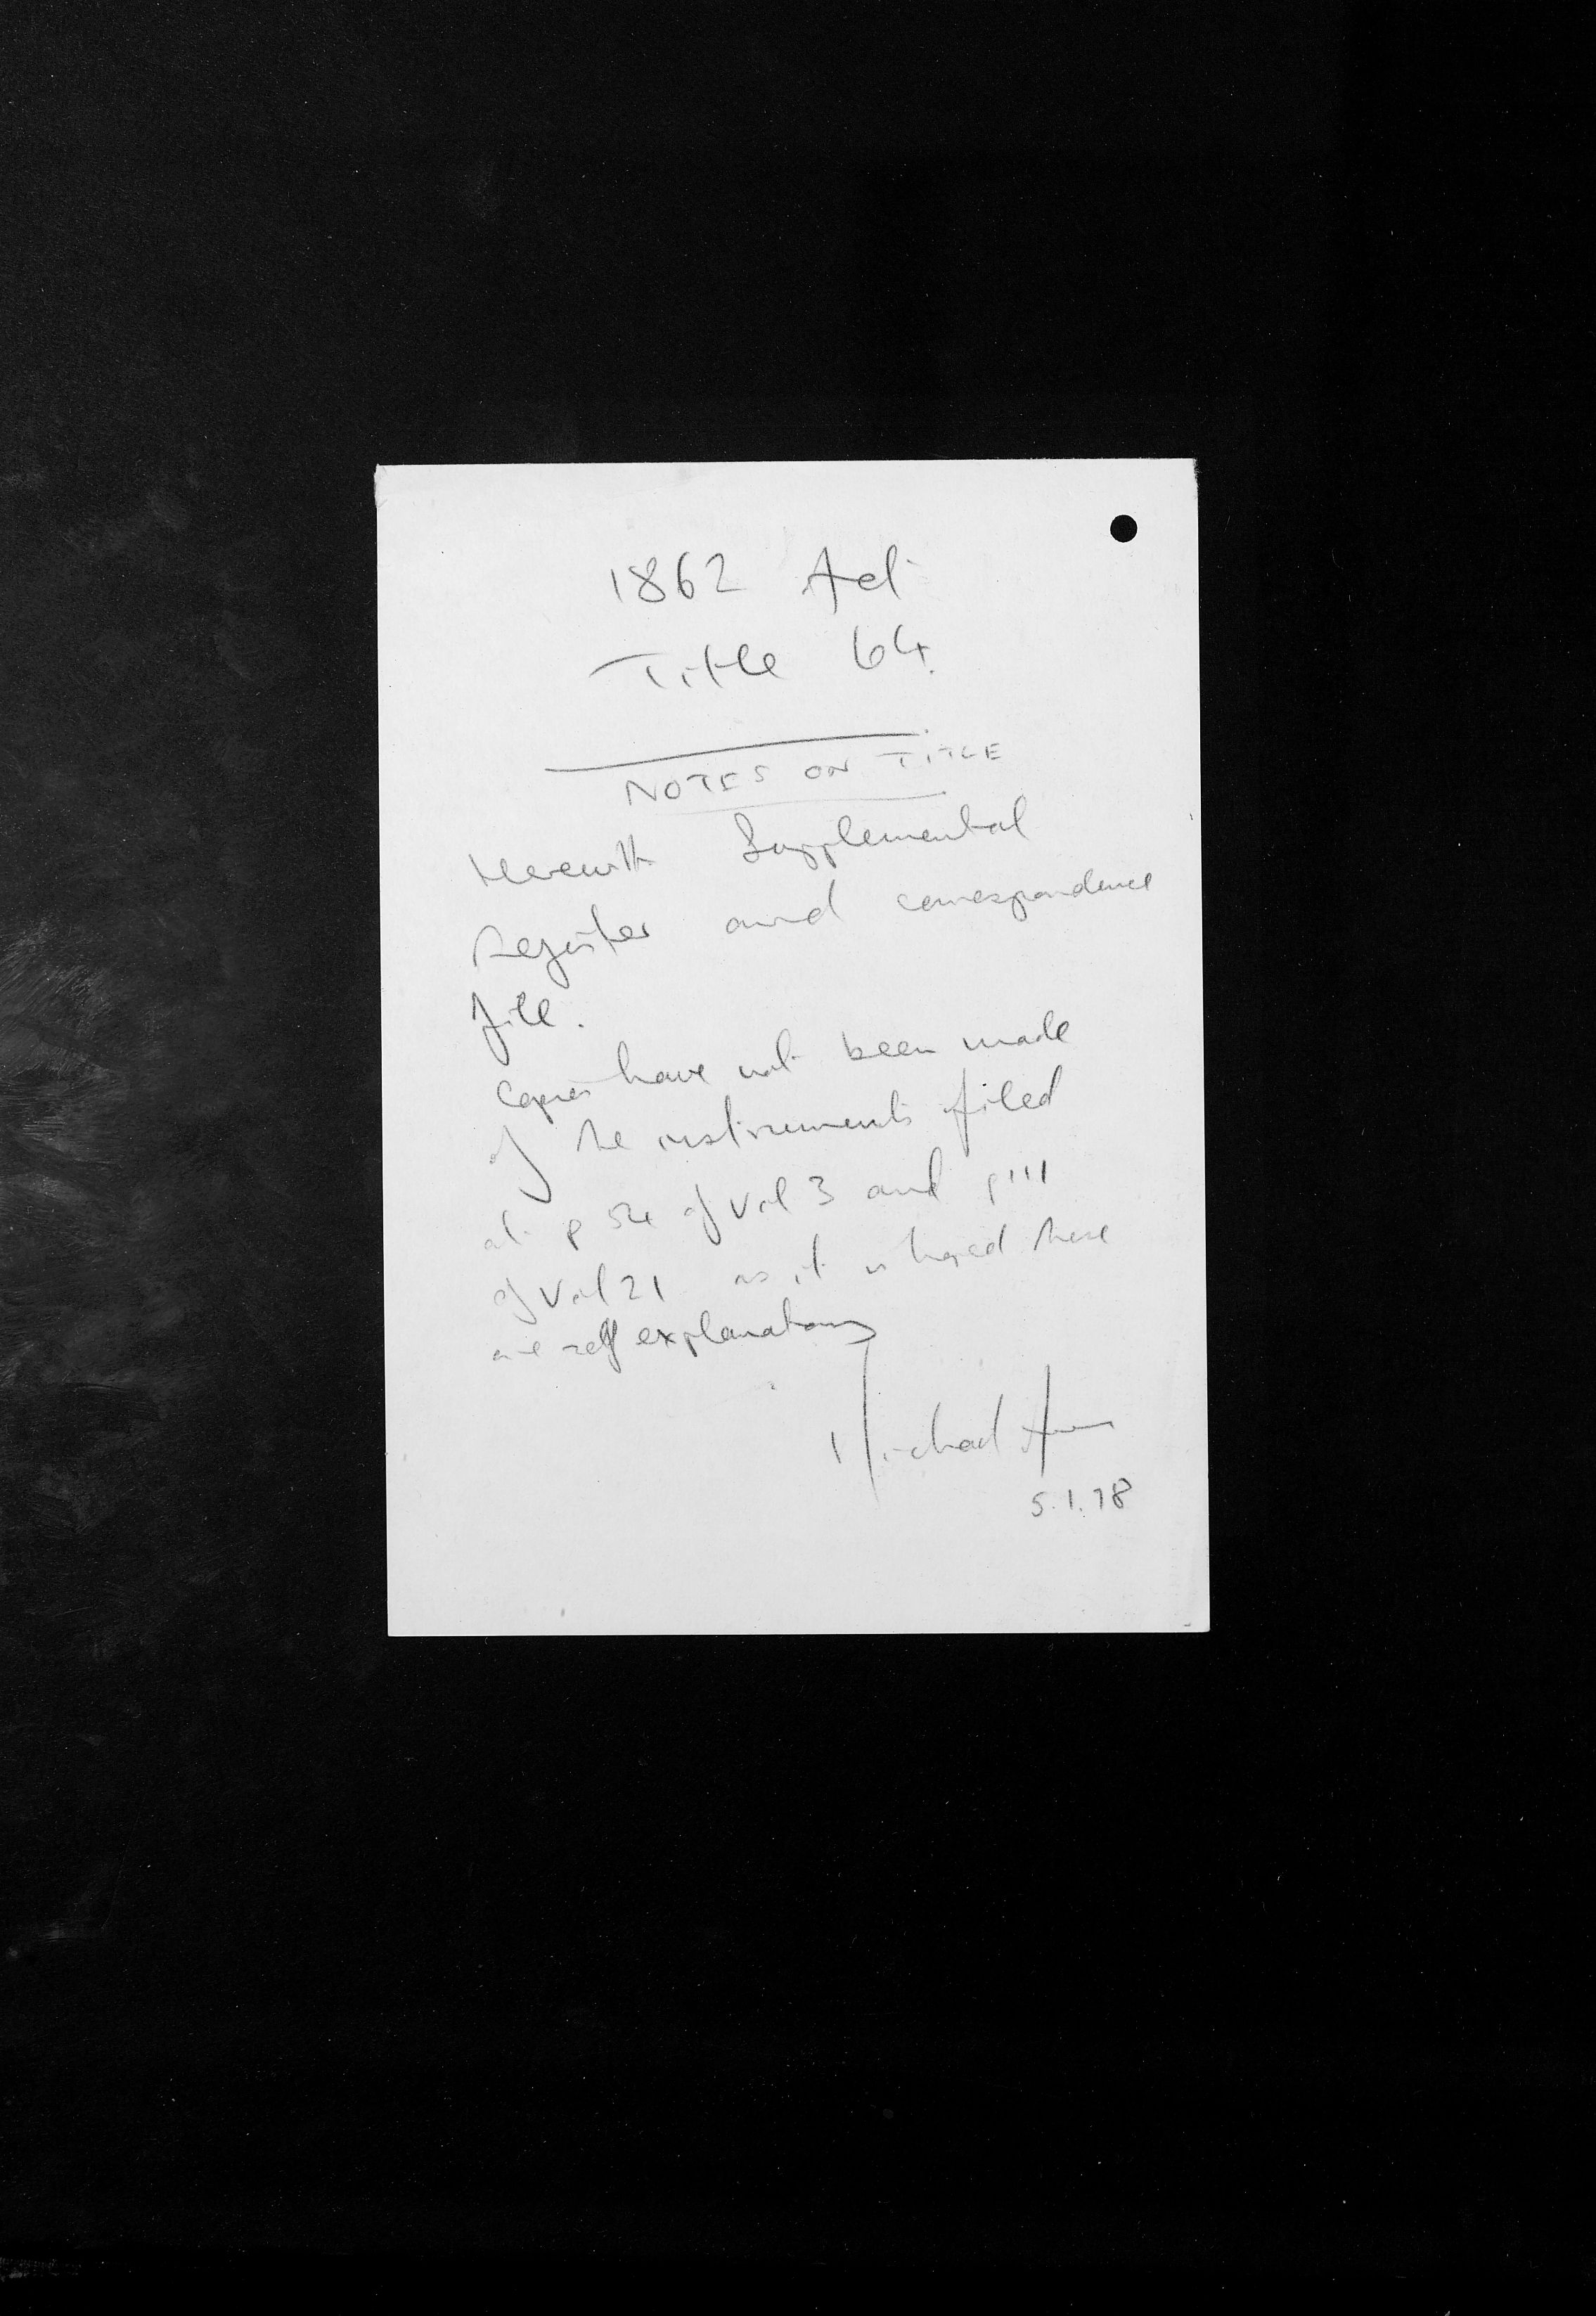 1862 Act
Title 64.
NOTES ON TITLE
Herewith Supplemental
Register and correspondence
file.
Copies have not been made
of the instruments filed
at p 54 of Vol 3 and p111
of Vol 21 as it is hoped these
are self explanatory
Michael
5.1.78